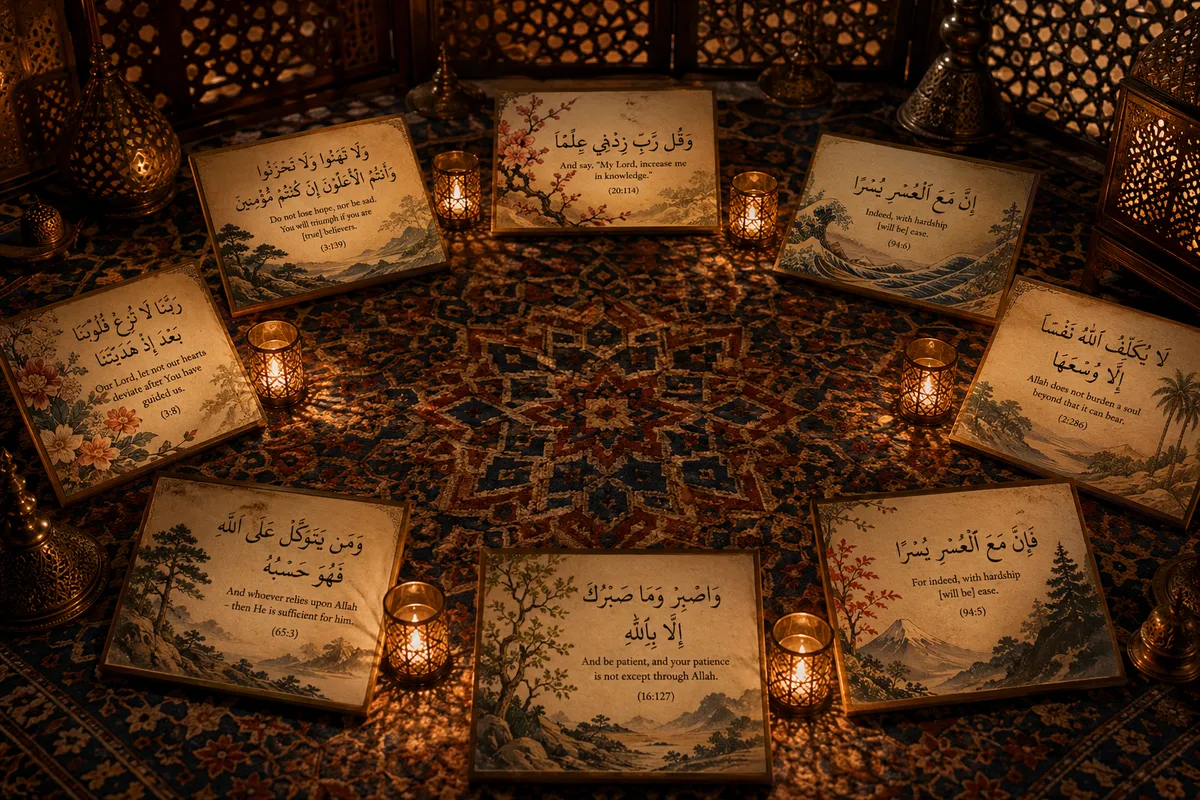 وَلَا تَهْنُوا وَلَا تَحْزَنُوا
وَأَنتُمُ الْأَعْلَوْنَ إِن كُنتُم مُّؤْمِنِينَ
Do not lose hope, nor be sad.
You will triumph if you are
[true] believers.
(3:139)
وَقُل رَّبِّ زِدْنِي عِلْمًا
And say, "My Lord, increase me
in knowledge."
(20:114)
إِنَّ مَعَ الْعُسْرِ يُسْرًا
Indeed, with hardship
[will be] ease.
(94:6)
رَبَّنَا لَا تُزِغْ قُلُوبَنَا
بَعْدَ إِذْ هَدَيْتَنَا
Our Lord, let not our hearts
deviate after You have
guided us.
(3:8)
لَا يُكَلِّفُ اللَّهُ نَفْسًا
إِلَّا وُسْعَهَا
Allah does not burden a soul
beyond that it can bear.
(2:286)
وَمَن يَتَوَكَّلْ عَلَى اللَّهِ
فَهُوَ حَسْبُهُ
And whoever relies upon Allah
– then He is sufficient for him.
(65:3)
وَاصْبِرْ وَمَا صَبْرُكَ
إِلَّا بِاللَّهِ
And be patient, and your patience
is not except through Allah.
(16:127)
فَإِنَّ مَعَ الْعُسْرِ يُسْرًا
For indeed, with hardship
[will be] ease.
(94:5)